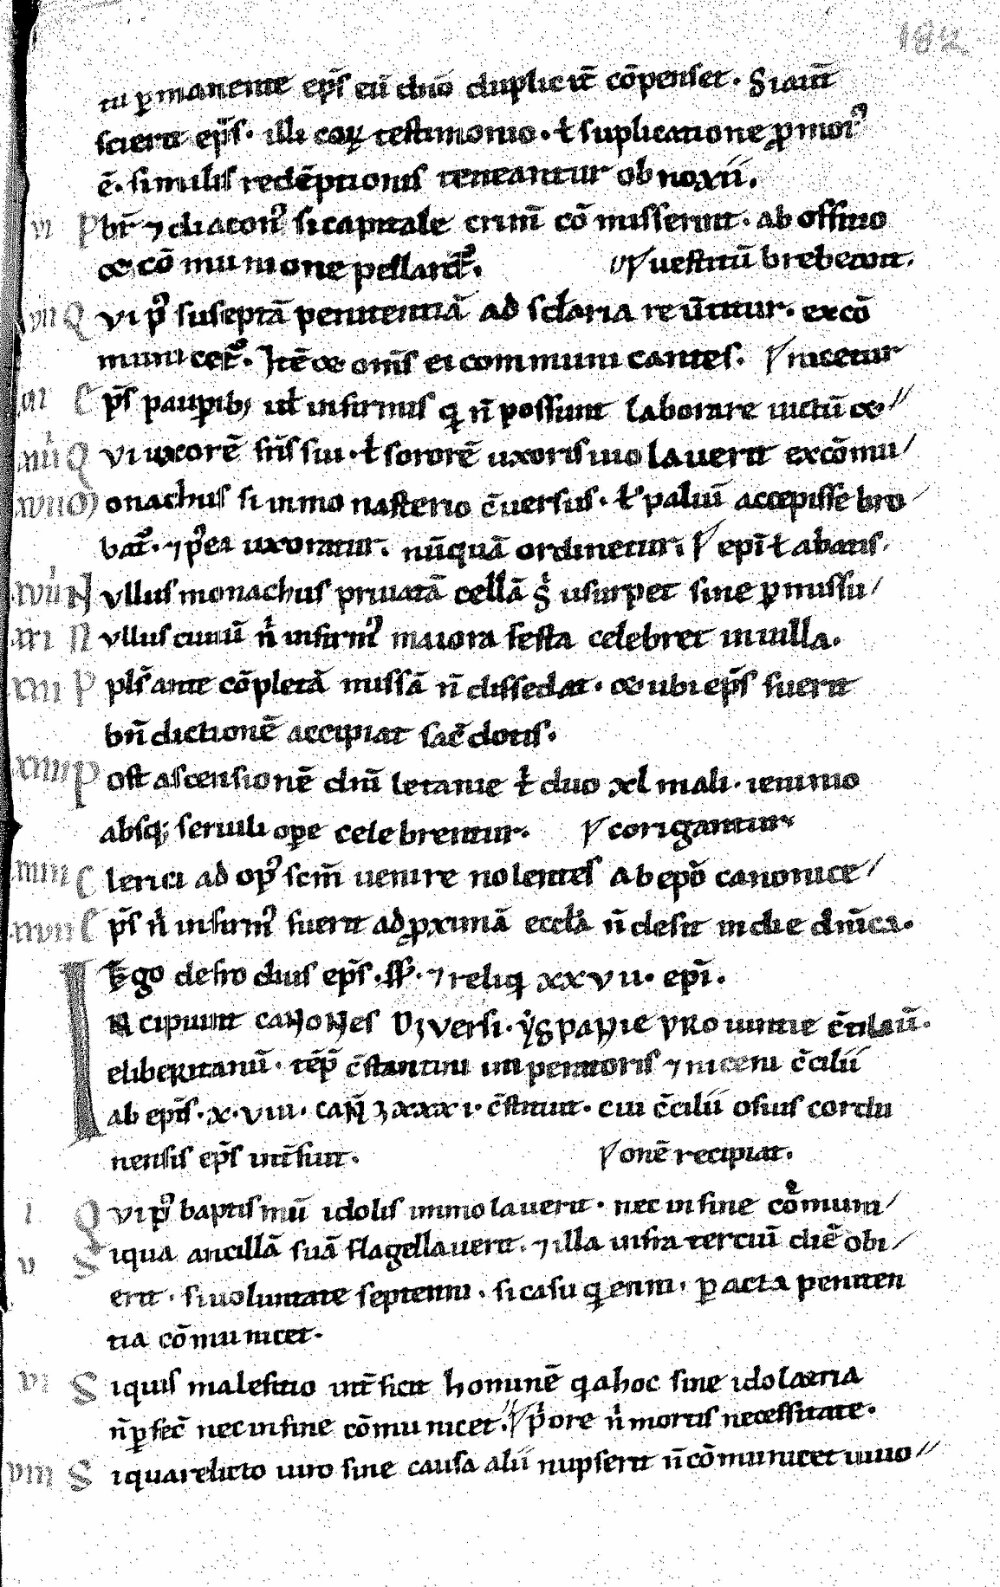 182
tu ꝑmanente ep̄s eū duo duplic it̄ cōpenset. Si aut̄
scierit ep̄s. illi coꝝ testimonio. ł suplicatione p̱mot᷒
ē. similis redēptionis teneantur obnoxii.
vi Pbr̄ ⁊ diacon᷒ si capitale crim̄ cōmisserint. ab offitio
& cōmunione pellant᷒. vestitū brebeant.
vii Qui p᷒ suseptā penitentiā ad sclaria reūtitur. excō
municet᷒. Itē & om̄s ei communicantes. nicetur
ep̄s paupib; uł infirmis q n̄ possunt laborare uictū &
Qui uxorē fr̄is sui. ł sororē uxoris uiolauerit excōmu
Monachus si in monasterio c̄versus. ł paliū accepisse bro
bat᷒. ⁊ p᷒ea uxoratur. nūquā ordinetur. epī ł abatis.
Nullus monachus priuatā cellā usurpet sine ꝑmissu
Nullus ciuiū n̄ infirm᷒ maiora festa celebret in uilla.
Ppl̄s ante cōpletā missā n̄ dissedat. & ubi ep̄s fuerit
bn̄dictionē accipiat sac̄dotis.
Post ascensionē dn̄i letanie ł duo xl mali. ieiunio
absq; seruili oꝑe celebrentur. corigantur
Clerici ad op᷒ scm̄ uenire nolentes ab epō canonice
ep̄s n̄ infirm᷒ fuerit ad p̱ximā eccl̄ā n̄ desit in die dn̄ica.
Ego desiro dius ep̄s. ss. ⁊ reliq xxvii. epī.
Incipiunt canones diversi. yspanie pro uintie c̄ciliū.
eliberitanū. tēp̄ c̄stantini imperatoris ⁊ niceni c̄cilii
ab ep̄is. x.viii. can̄ 3xxxi. c̄stituit. cui c̄cilii osius cordu
nensis ep̄s int̄fuit. onē recipiat.
i Qui p᷒ baptismū idolis immolauerit. nec in fine cōmuni
v Siqua ancillā suā flagellauerit. ⁊ illa infra terciū diē obi
erit. si uoluntate septenni. si casu qenni. ꝑacta peniten
tia cōmunicet.
vi Siquis malefitio int̄ficit hominē q a hoc sine idolatria
n̄ ꝑfec̄ nec in fine cōmunicet. ore n̄ mortis necessitate.
viii Siqua relicto uiro sine causa alii nupserit n̄ cōmunicet uiuo